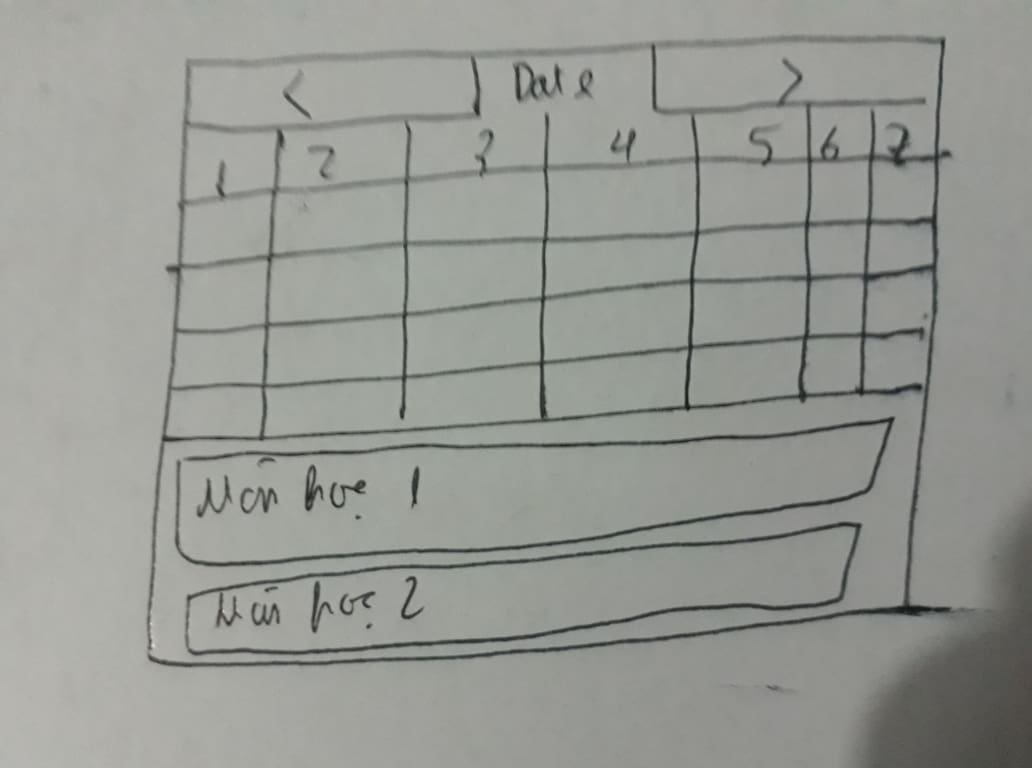 < Date >
1 2 3 4 5 6 7
Môn học 1
Môn học 2